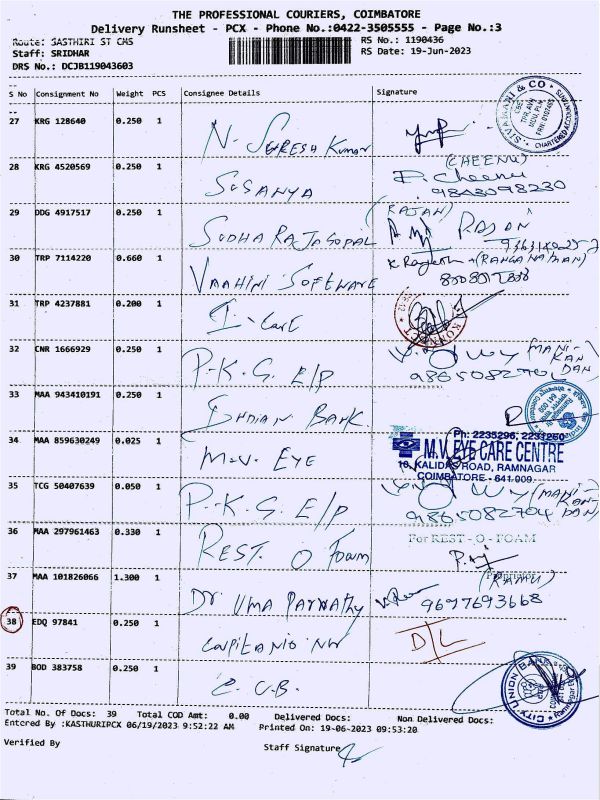 THE PROFESSIONAL COURIERS, COIMBATORE
Delivery Runsheet - PCX - Phone No.:0422-3505555 - Page No.:3
Route: SASTHIRI ST CMS RS No.: 1190436
Staff: SRIDHAR RS Date: 19-Jun-2023
DRS No.: DCJB119043603
S No Consignment No Weight PCS Consignee Details Signature
SIVARAJ & CO
CHARTERED ACCOUNTANTS
27 KRG 128640 0.250 1 N. SURESH Kumar
(CHEENU)
28 KRG 4520569 0.250 1 SUSANYA P. Cheenu
9843098230
(RAJAN)
29 DDG 4917517 0.250 1 SUDHA RAJAGOPAL RAJAN
30 TRP 7114220 0.660 1 VAAHINI SOFTWARE (RANGANATHAN)
31 TRP 4237881 0.200 1 I-Care
32 CNR 1666929 0.250 1 P.K.G. E/P (MANI-
KAN
DAN)
9865082704
33 MAA 943410191 0.250 1 INDIAN BANK
34 MAA 859630249 0.025 1 M.V. EYE
Ph: 2235296, 2231260
M.V. EYE CARE CENTRE
16, KALIDAS ROAD, RAMNAGAR
COIMBATORE - 641 009.
35 TCG 50407639 0.050 1 P.K.G. E/P (MANI-
KAN
DAN)
9865082704
36 MAA 297961463 0.330 1 REST. O Foam
For REST - O - FOAM
Proprietor
37 MAA 101826066 1.300 1 Dr UMA PARVATHY (RAMU)
9697693668
38 EDQ 97841 0.250 1 Capitanio NW D/L
39 BOD 383758 0.250 1 C.U.B.
CITY UNION BANK
Total No. Of Docs: 39 Total COD Amt: 0.00 Delivered Docs: Non Delivered Docs:
Entered By :KASTHURIPCX 06/19/2023 9:52:22 AM Printed On: 19-06-2023 09:53:20
Verified By Staff Signature